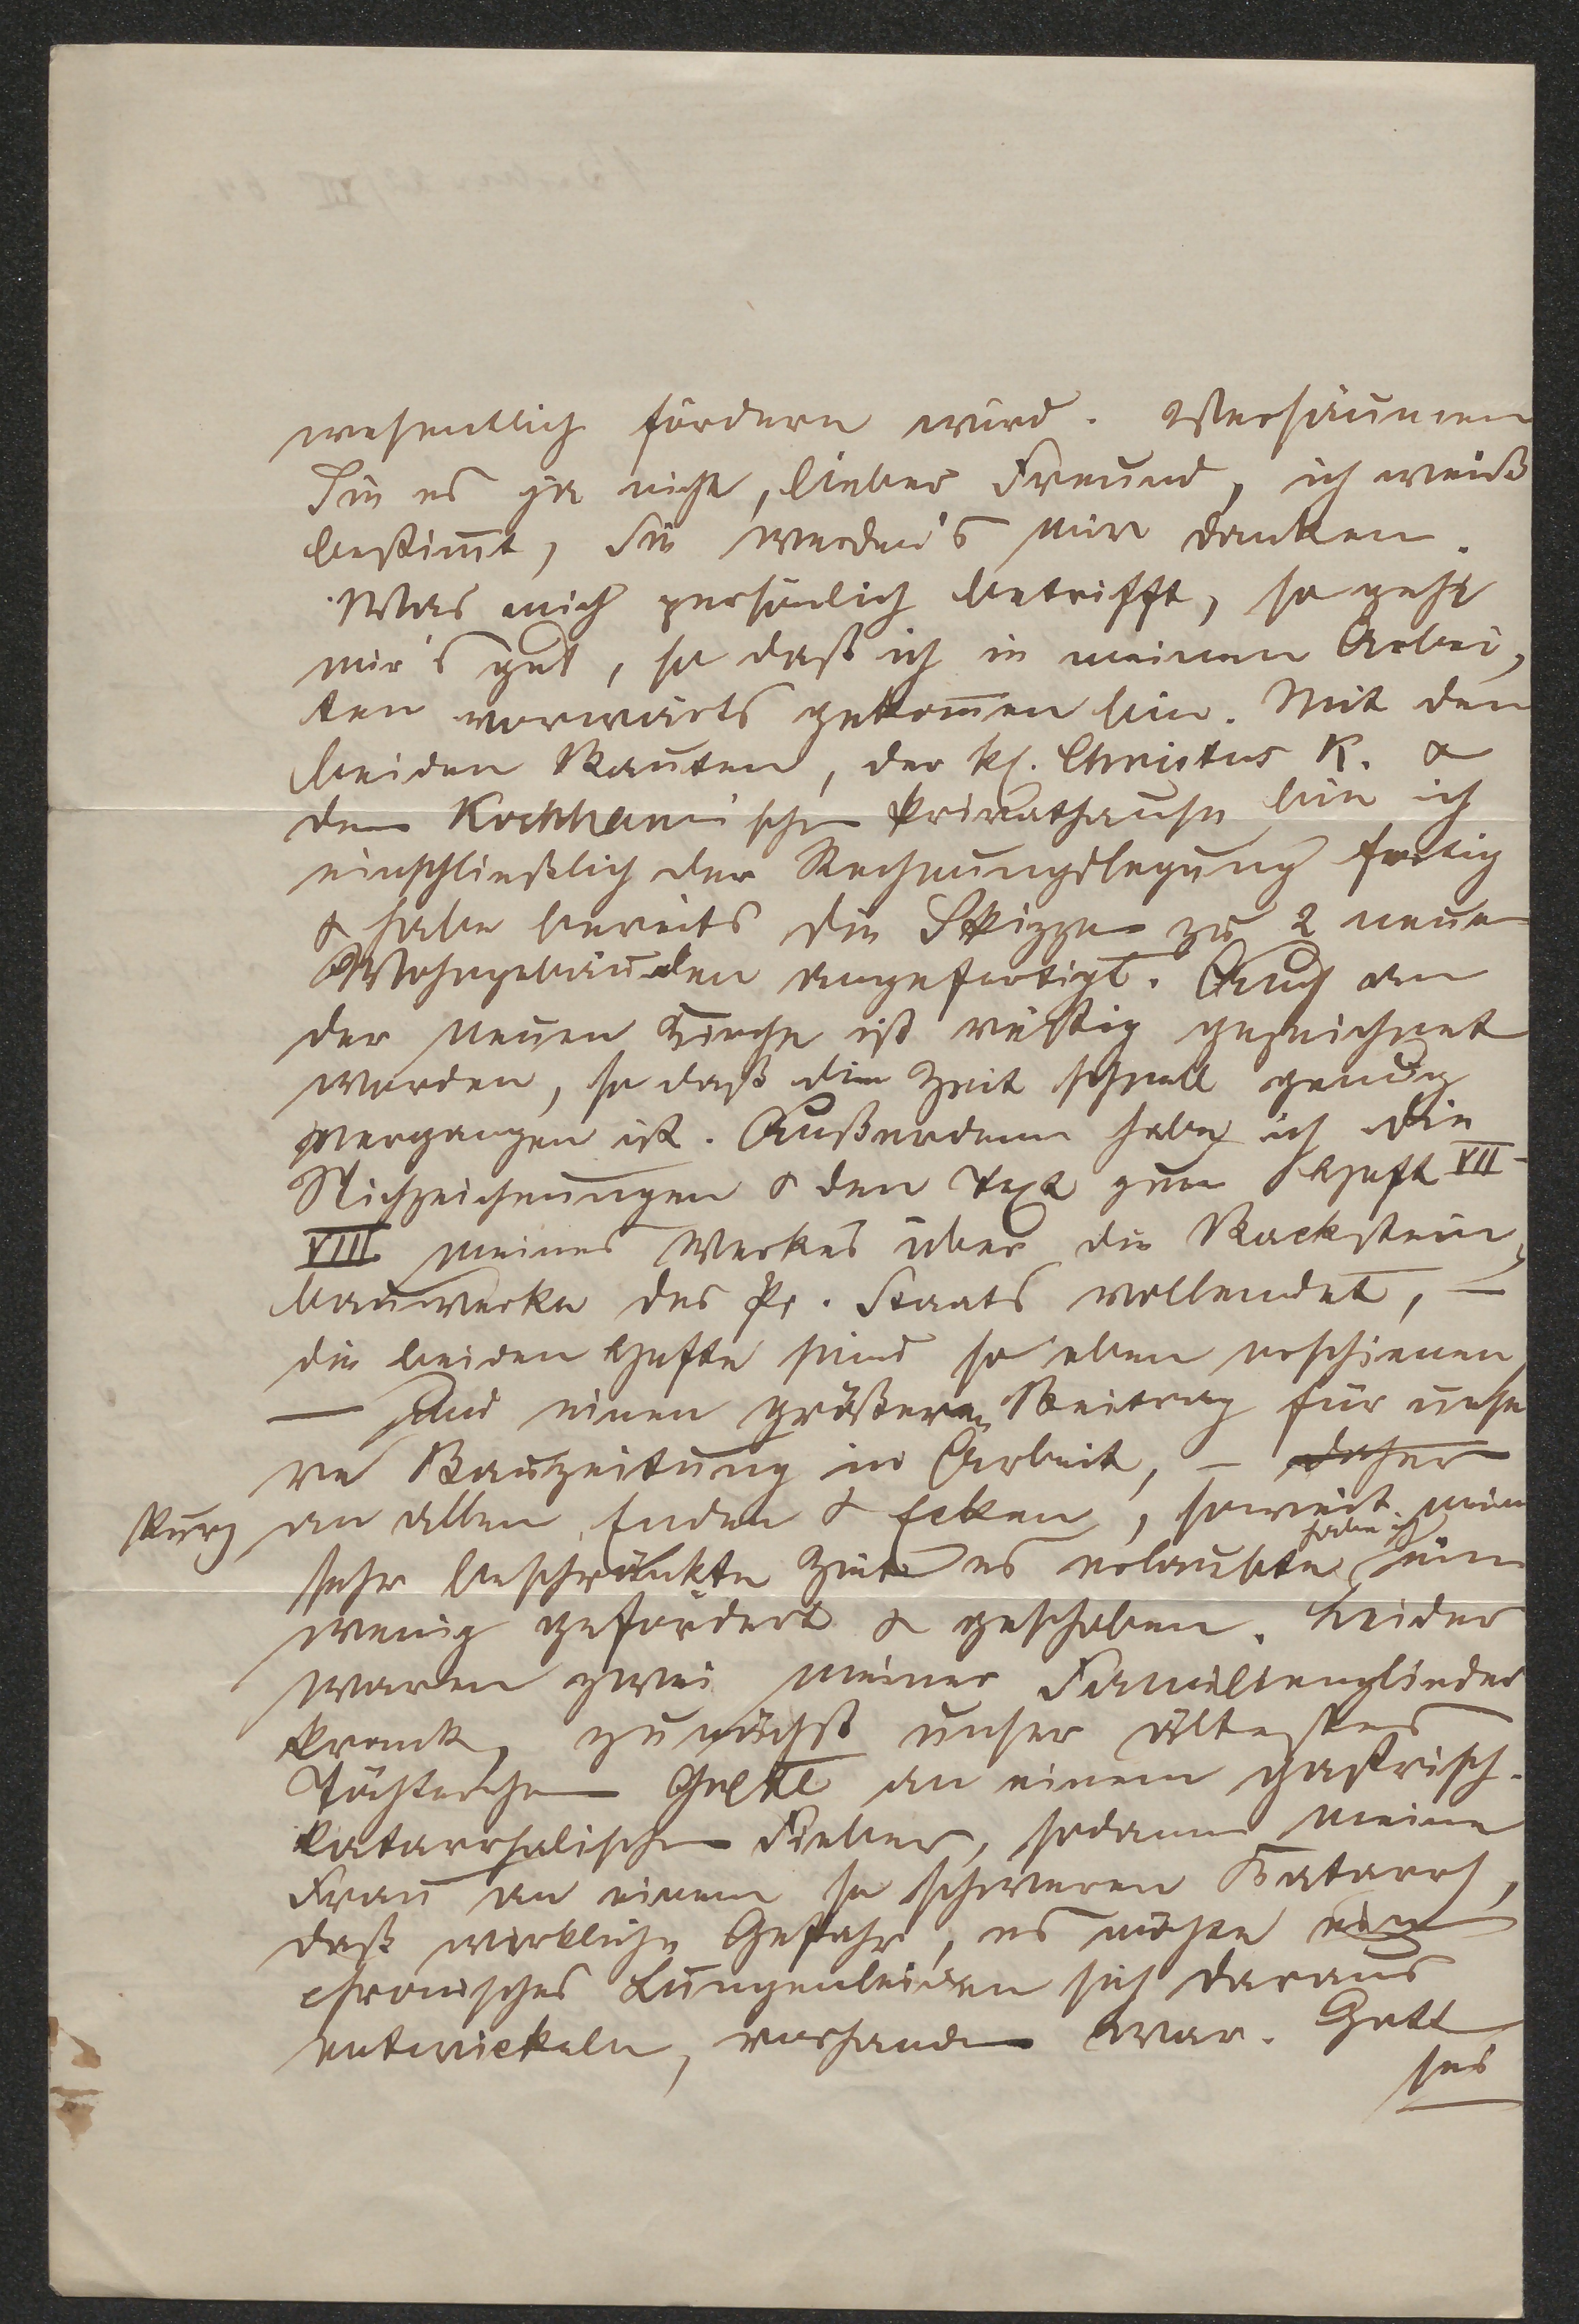 wesentlich fördern wird. Versäumen
Sie es ja nicht, lieber Freund, ich weiß
bestim̅t, Sie werden's mir danken.
Was mich persönlich betrifft, so geht
mir's gut, so daß ich in meinen Arbei-
ten vorwärts gekom̅en bin. Mit den
beiden Bauten, der kl. Christus K. &
dem Kochhann'schen Privathause bin ich
einschließlich der Rechnungslegung fertig
& habe bereits die Skizzen zu 2 neuen
Wohngebäuden angefertigt. Auch an
der neuen Kirche ist rüstig gezeichnet
worden, so daß die Zeit schnell genug
vergangen ist. Außerdem habe ich die
Stichzeichnungen & den Text zum Heft VII-
VIII meines Werkes über die Backstein-
bauwerke des Pr. Staats vollendet, —
die beiden Hefte sind so eben erschienen
— und einen größeren Beitrag für unse
re Bauzeitung in Arbeit, — daher
kurz an allen Enden & Ecken, soweit meine
sehr beschränkte Zeit es erlaubte, habe ich ein
wenig gefördert & geschoben. Leider
waren zwei meiner Familienglieder
krank, zunächst unser ältestes
Töchterchen Gretel an einem gastrisch-
katarrhalischen Fieber, sodann meine
Frau an einem so schweren Katarrh,
daß wirkliche Gefahr, es möchte ein
chronisches Lungenleiden sich daraus
entwickeln, vorhanden war. Gott
sei